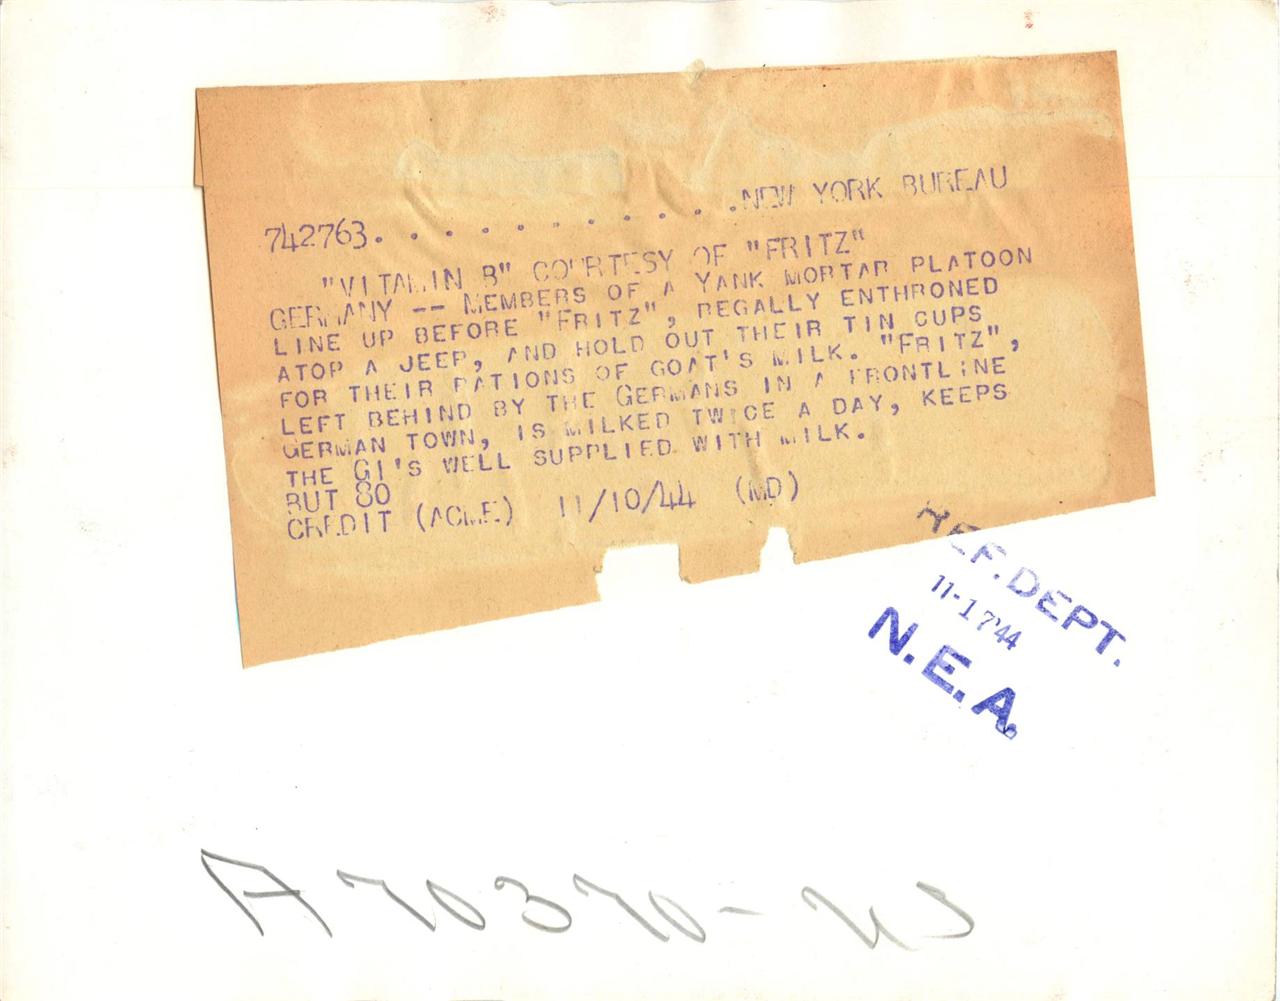 742763. . . . . . . . . . . .NEW YORK BUREAU
"VITAMIN B" COURTESY OF "FRITZ"
GERMANY -- MEMBERS OF A YANK MORTAR PLATOON
LINE UP BEFORE "FRITZ", REGALLY ENTHRONED
ATOP A JEEP, AND HOLD OUT THEIR TIN CUPS
FOR THEIR RATIONS OF GOAT'S MILK. "FRITZ",
LEFT BEHIND BY THE GERMANS IN A FRONTLINE
GERMAN TOWN, IS MILKED TWICE A DAY, KEEPS
THE GI'S WELL SUPPLIED WITH MILK.
BUT 80
CREDIT (ACME) 11/10/44 (MD)
REF. DEPT.
11-17'44
N.E.A.
A70370-